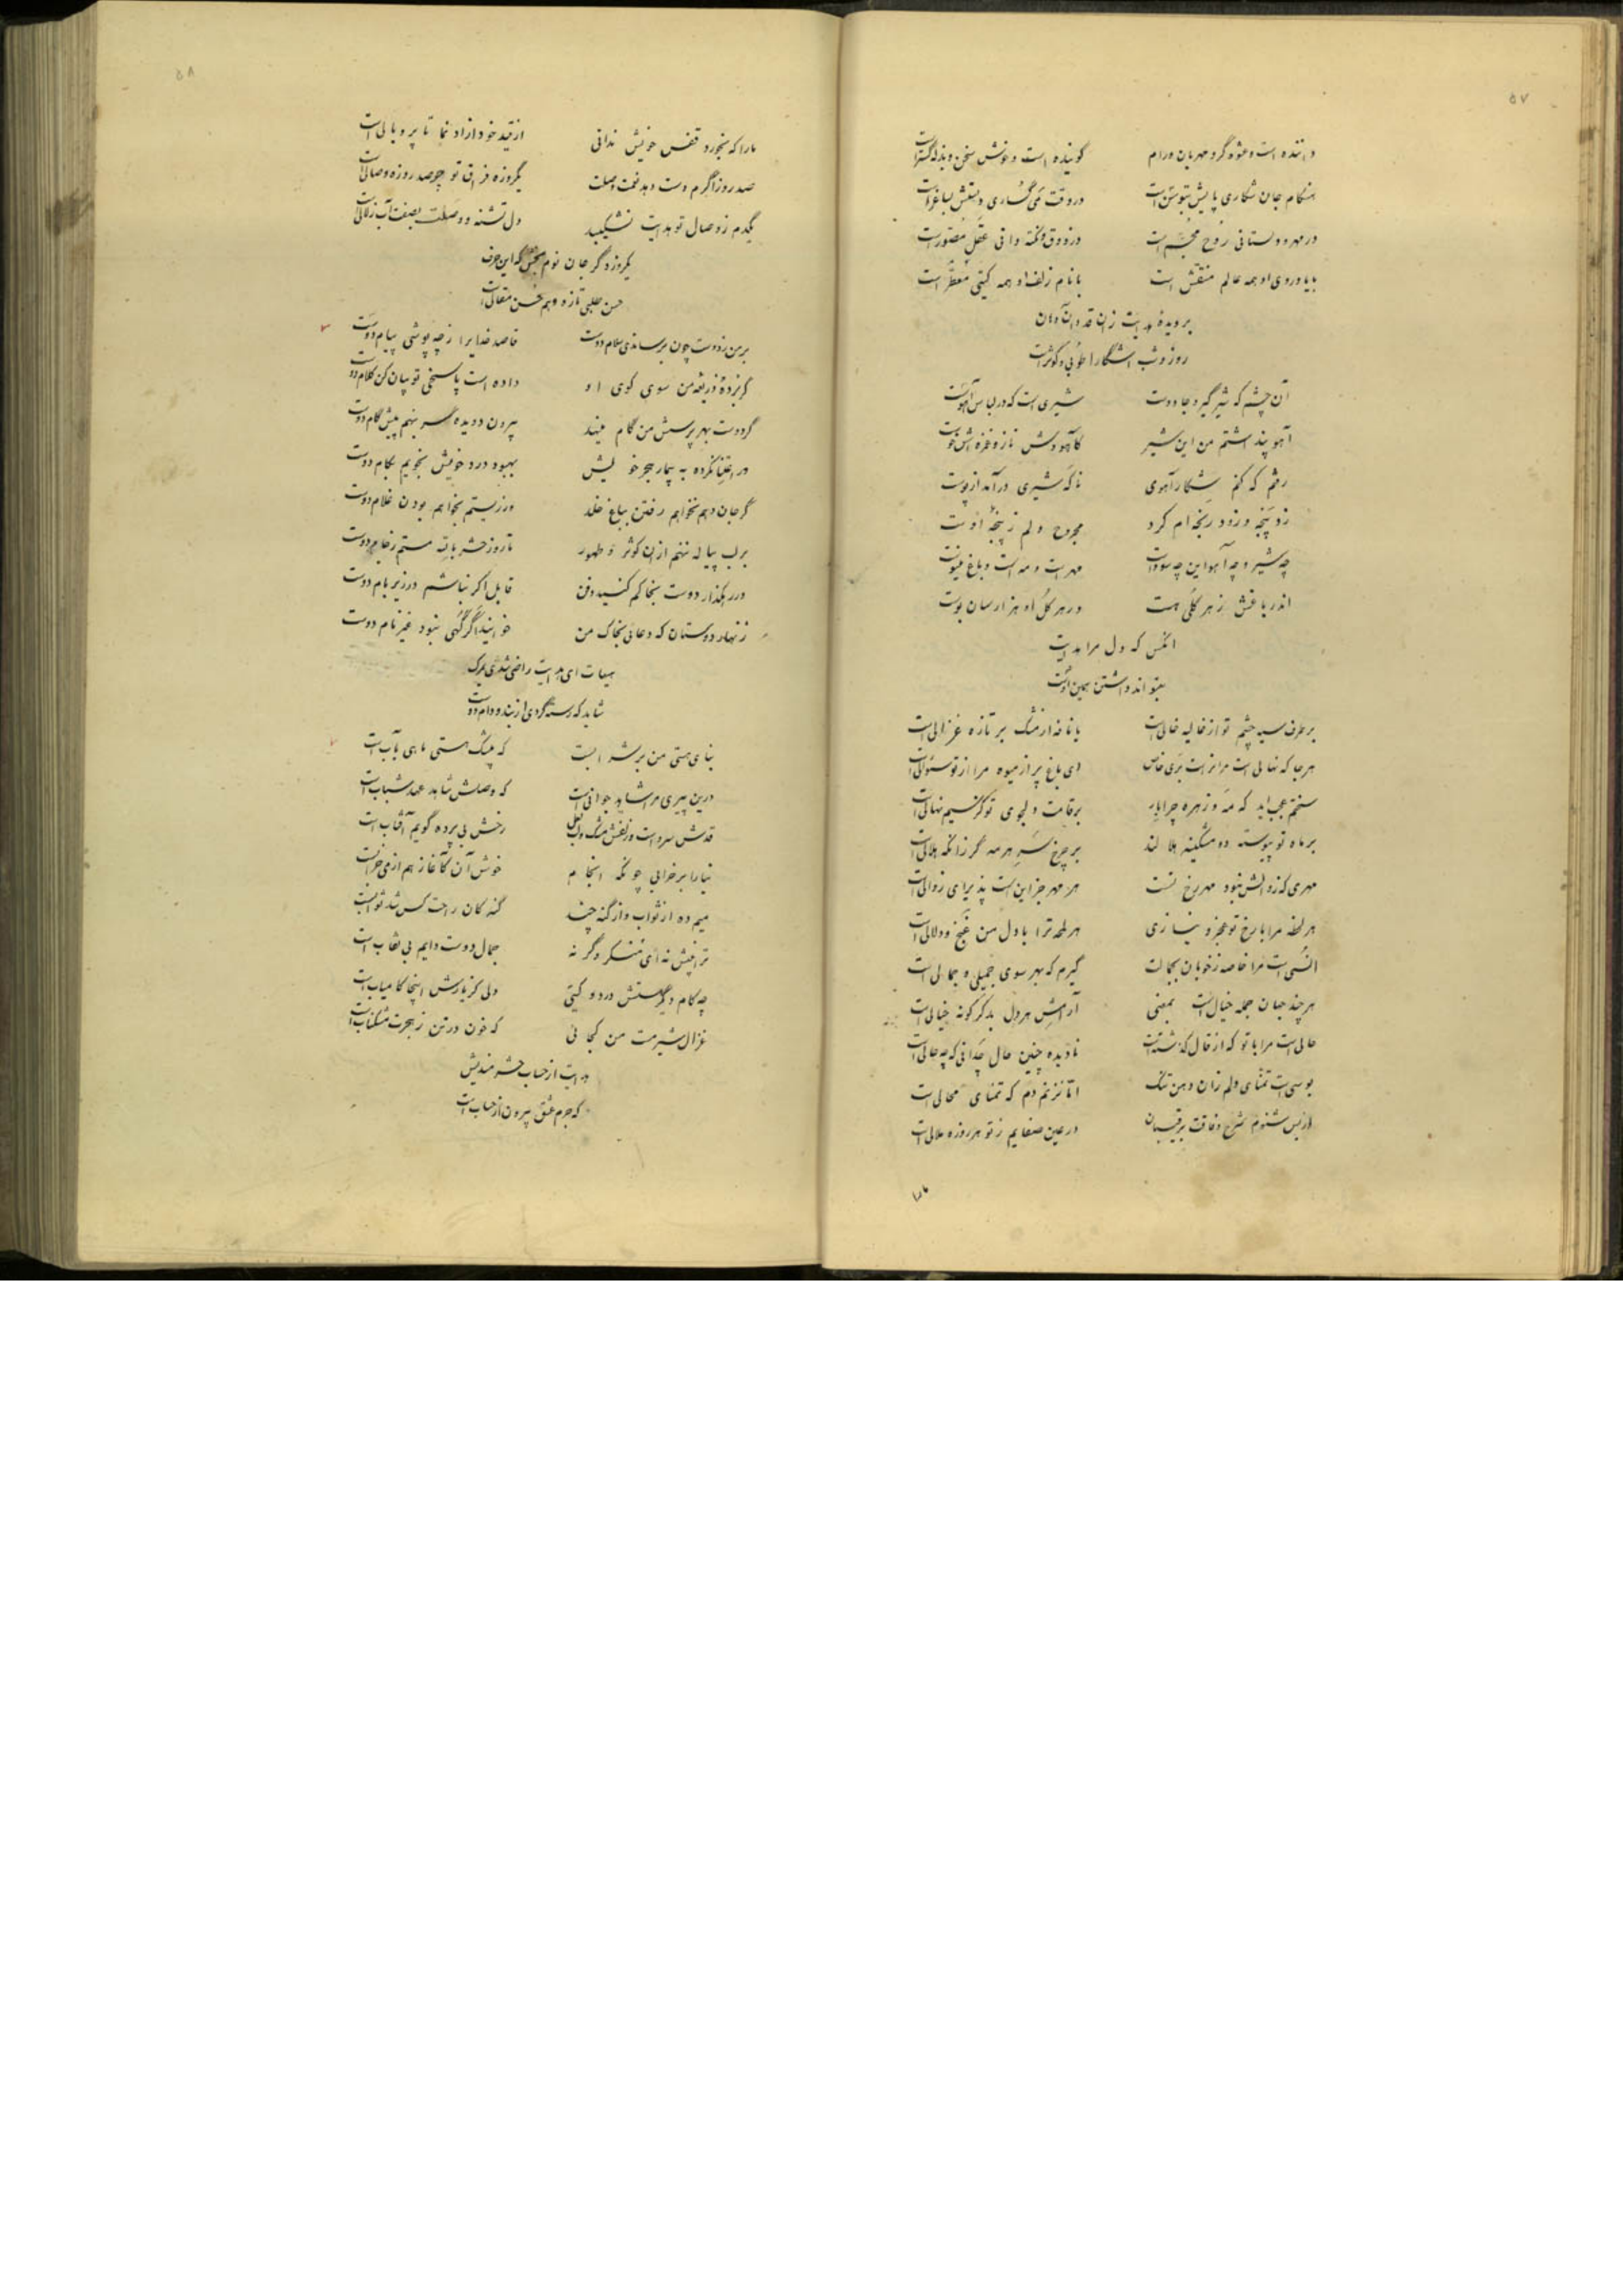 ۵۷
داننده است و عشوه‌گر و مهربان و رام گوینده است و خوش سخن و بذله‌گستر است
هنگام جان شکاری پایش است در وقت می‌گساری دستش بساغر است
در مهر و دلستانی روح مجسم است در ذوق و نکته دانی عقل مصور است
با یاد روی او همه عالم منقش است با نام زلف او همه گیتی معطر است
بر دیدهٔ هدایت زان قد و آن دهان
روز و شب آشکارا طوبی و کوثر است
آن چشم که شیر گیر و جادوست شیری است که در لباس آهوست
آهو پنداشتم من این شیر کآهو وش ناز و غمزه‌اش خوست
رفتم که کنم شکار آهوی ناگه شیری درآمد از پوست
زد پنجه و زود رنجه‌ام کرد مجروح دلم ز پنجهٔ اوست
چه شیر و چه آهو این چه سوداست مهر است و مه است و باغ مینوست
اندر باغش ز هر گلی هست در هر گل او هزار سان بوست
آنکس که دل مرا هدایت
بتواند داشتن همین اوست
بر طرف سیه چشم تو از غالیه خالی است یا نافه از مشک بر تازه غزالی است
هر جا که نهالی است مر آنراست بری خاص ای باغ پر از میوه مرا از تو سئوالی است
سختم عجب آید که مه و زهره چرا بار بر قامت دلجوی تو کز سیم نهالی است
بر ماه تو پیوسته دو مشکینه هلالند بر چرخ سر هر مه گر زانکه هلالی است
مهری که زوالش نبود مهر رخ تست هر مهر جز این است پذیرای زوالی است
هر لحظه مرا با رخ تو عجز و نیازی هر لمحه ترا با دل من غنج و دلالی است
انسی است مرا خاصه ز خوبان بجمالت گیرم که بهر سوی جمیلی و جمالی است
هر چند جهان جمله خیال است بمعنی آرامش هر دل بدگر گونه خیالی است
حالی است مرا با تو که از قال گذشتست نادیده چنین حال چه دانی که چه حالی است
بوسی است تمنای دلم زان دهن تنگ اما نزنم دم که تمنای محالی است
از بس شنوم شرح وفاقت برقیبان در عین صفایم ز تو هر روزه ملالی است
ما را
۵۸
ما را که نخورد قفس خویش ندانی از قید خود آزاد نما تا پر و بالی است
صد روز اگرم دست دهد نعمت وصلت یکروزه فراق تو چو صد روزه وصالی است
یکدم ز وصال تو هدایت نشکیبد دل تشنه و وصلت بصفت آب زلالی است
یکروز دگر جان نوم بخش که این حرف
حسن طلبی تازه و هم حسن مقالی است
بر من ز دوست چون برساندی سلام دوست قاصد خدایرا ز چه پوشی پیام دوست
گر بردهٔ ذریعهٔ من سوی کوی او داده است پاسخی تو بیان کن کلام دوست
گر دوست بهر پرسش من گام مینهد بیرون دو دیده سر بنهم پیش گام دوست
ور اعتنا نکرده به بیمار هجر خویش بهبود درد خویش نجویم بکام دوست
گر جان دهم نخواهم رفتن بباغ خلد ور زیستم بخواهم بودن غلام دوست
بر لب پیاله ننهم از آن کوثر و طهور تا روز حشر باللّه مستم ز جام دوست
در رهگذار دوست بخاکم کنید دفن قابل اگر نباشم در زیر بام دوست
زنهار دوستان که دعائی بخاک من خوانید اگر گهی نبود غیر نام دوست
هیهات ای هدایت راضی شدی بمرگ
شاید که رسته گردی از بند و دام دوست
بنای هستی من بر شرابست که بیشک هستی ماهی بآب است
درین پیری مر شاید جوانی است که وصلش شاهد عهد شباب است
قدش سرو است و زلفش مشک و لب لعل رخش بی پرده گویم آفتاب است
بنا را بر خرابی چونکه انجام خوش آن کآغاز هم از می خراب است
میم ده از ثواب و از گنه چند گنه کان راحت کس شد ثوابست
ترا بینش نه ای منکر وگر نه جمال دوست دایم بی نقاب است
چه کام دیگر استش در دو گیتی دلی کز یارش اینجا کامیاب است
غزال شیر مست من کجائی که خون در تن ز هجرت مشکناب است
هدایت از حساب حشر مندیش
که جرم عشق بیرون از حساب است